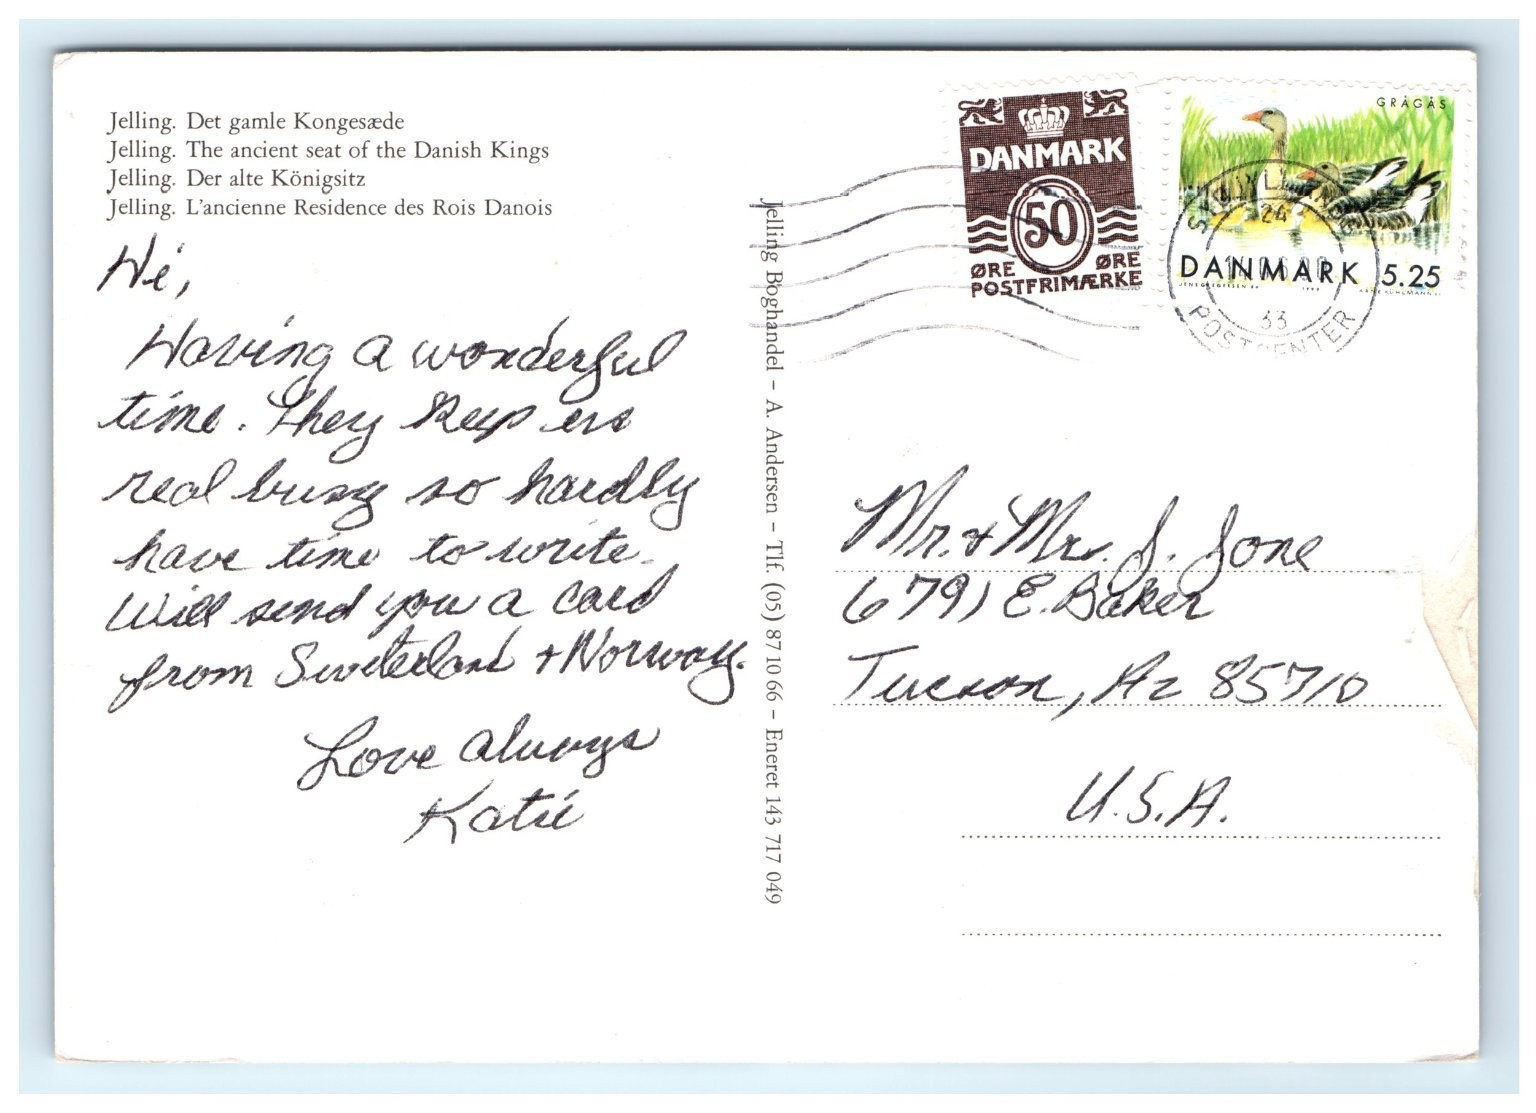 Jelling. Det gamle Kongesæde
Jelling. The ancient seat of the Danish Kings
Jelling. Der alte Königsitz
Jelling. L'ancienne Residence des Rois Danois
Hi,
Having a wonderful
time. They keep us
real busy so hardly
have time to write.
Will send you a card
from Switerland + Norway.
Love always
Katie
Jelling Boghandel – A. Andersen – Tlf. (05) 87 10 66 – Eneret 143 717 049
DANMARK
50
ØRE ØRE
POSTFRIMÆRKE
GRÅGÅS
DANMARK 5.25
24
33
POSTCENTER
Mr. & Mrs. J. Jone
6791 E. Baker
Tucson, Az 85710
U.S.A.